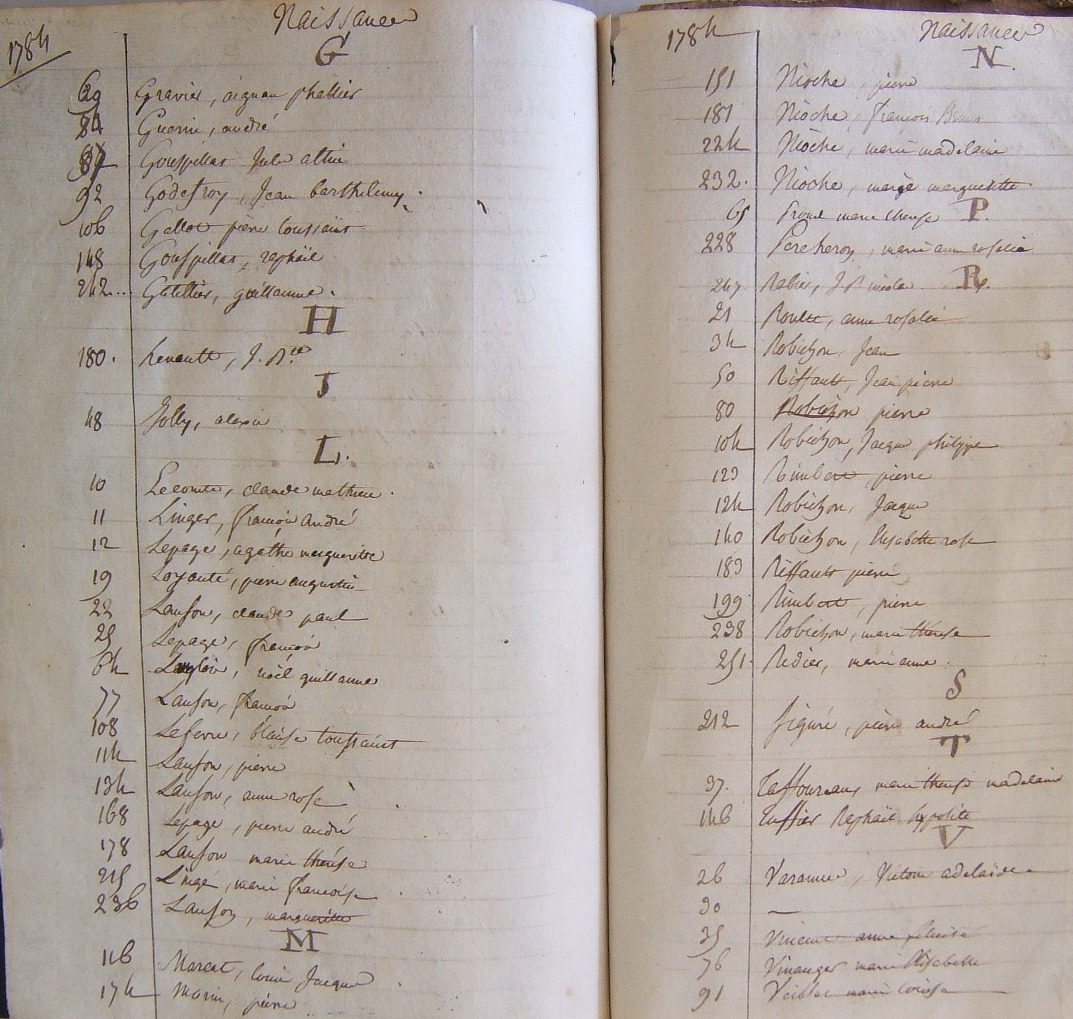 1784
Naissances
G
69 Gravier, aignan
84 Guerin, andré
87 Gouspillat Jule
92 Godefroy, Jean barthelemy
106 Gallot pierre toussaint
148 Gouspillat, raphaël
242 guillaume
H
180 henault, J. Bte
J
48 Jolly, alexis
L.
10 Lecomte, claude mathieu
11 Linger, françois andré
12 Lepage, agathe marguerite
19 Loyauté, pierre augustin
22 Lanson, claude paul
25 Lepage, françois
64 Langlois, noël guillaume
77 Lanson, françois
108 Lefevre, blaise toussaint
114 Lanson, pierre
134 Lanson, anne rose
168 Lepage, pierre andré
178 Lanson marie therese
215 Lingé, marie françoise
236 Lanson, marguerite
M
116 Marcat, louis Jacque
174 Morin, pierre
1784
Naissances
N.
151 Nioche, pierre
187 Nioche, francois
224 Nioche, marie madelaine
232. Nioche, marie marguerite
65 marie therese
P.
228 Percheron, marie anne rosalie
247 Rabier, J. B nicolas
R.
21 Roulle, anne rosalie
34 Robichon, Jean
50 Riffault, Jean pierre
80 Robichon pierre
104 Robichon, Jacque philippe
123 Rimbert pierre
124 Robichon, Jacque
140 Robichon, Elisabette rose
183 Riffault pierre
199 Rimbert, pierre
238 Robichon, marie therese
251 Redier, marie anne
S
212 Siguré, pierre andré
T
37. Taffoureau, marie therese madelaine
146 Tuffier Raphaël hypolite
V
26 Varanne, Victoire adelaide
30 —
35 Vincent anne
76 Vinauger marie Elisabette
91 marie louise